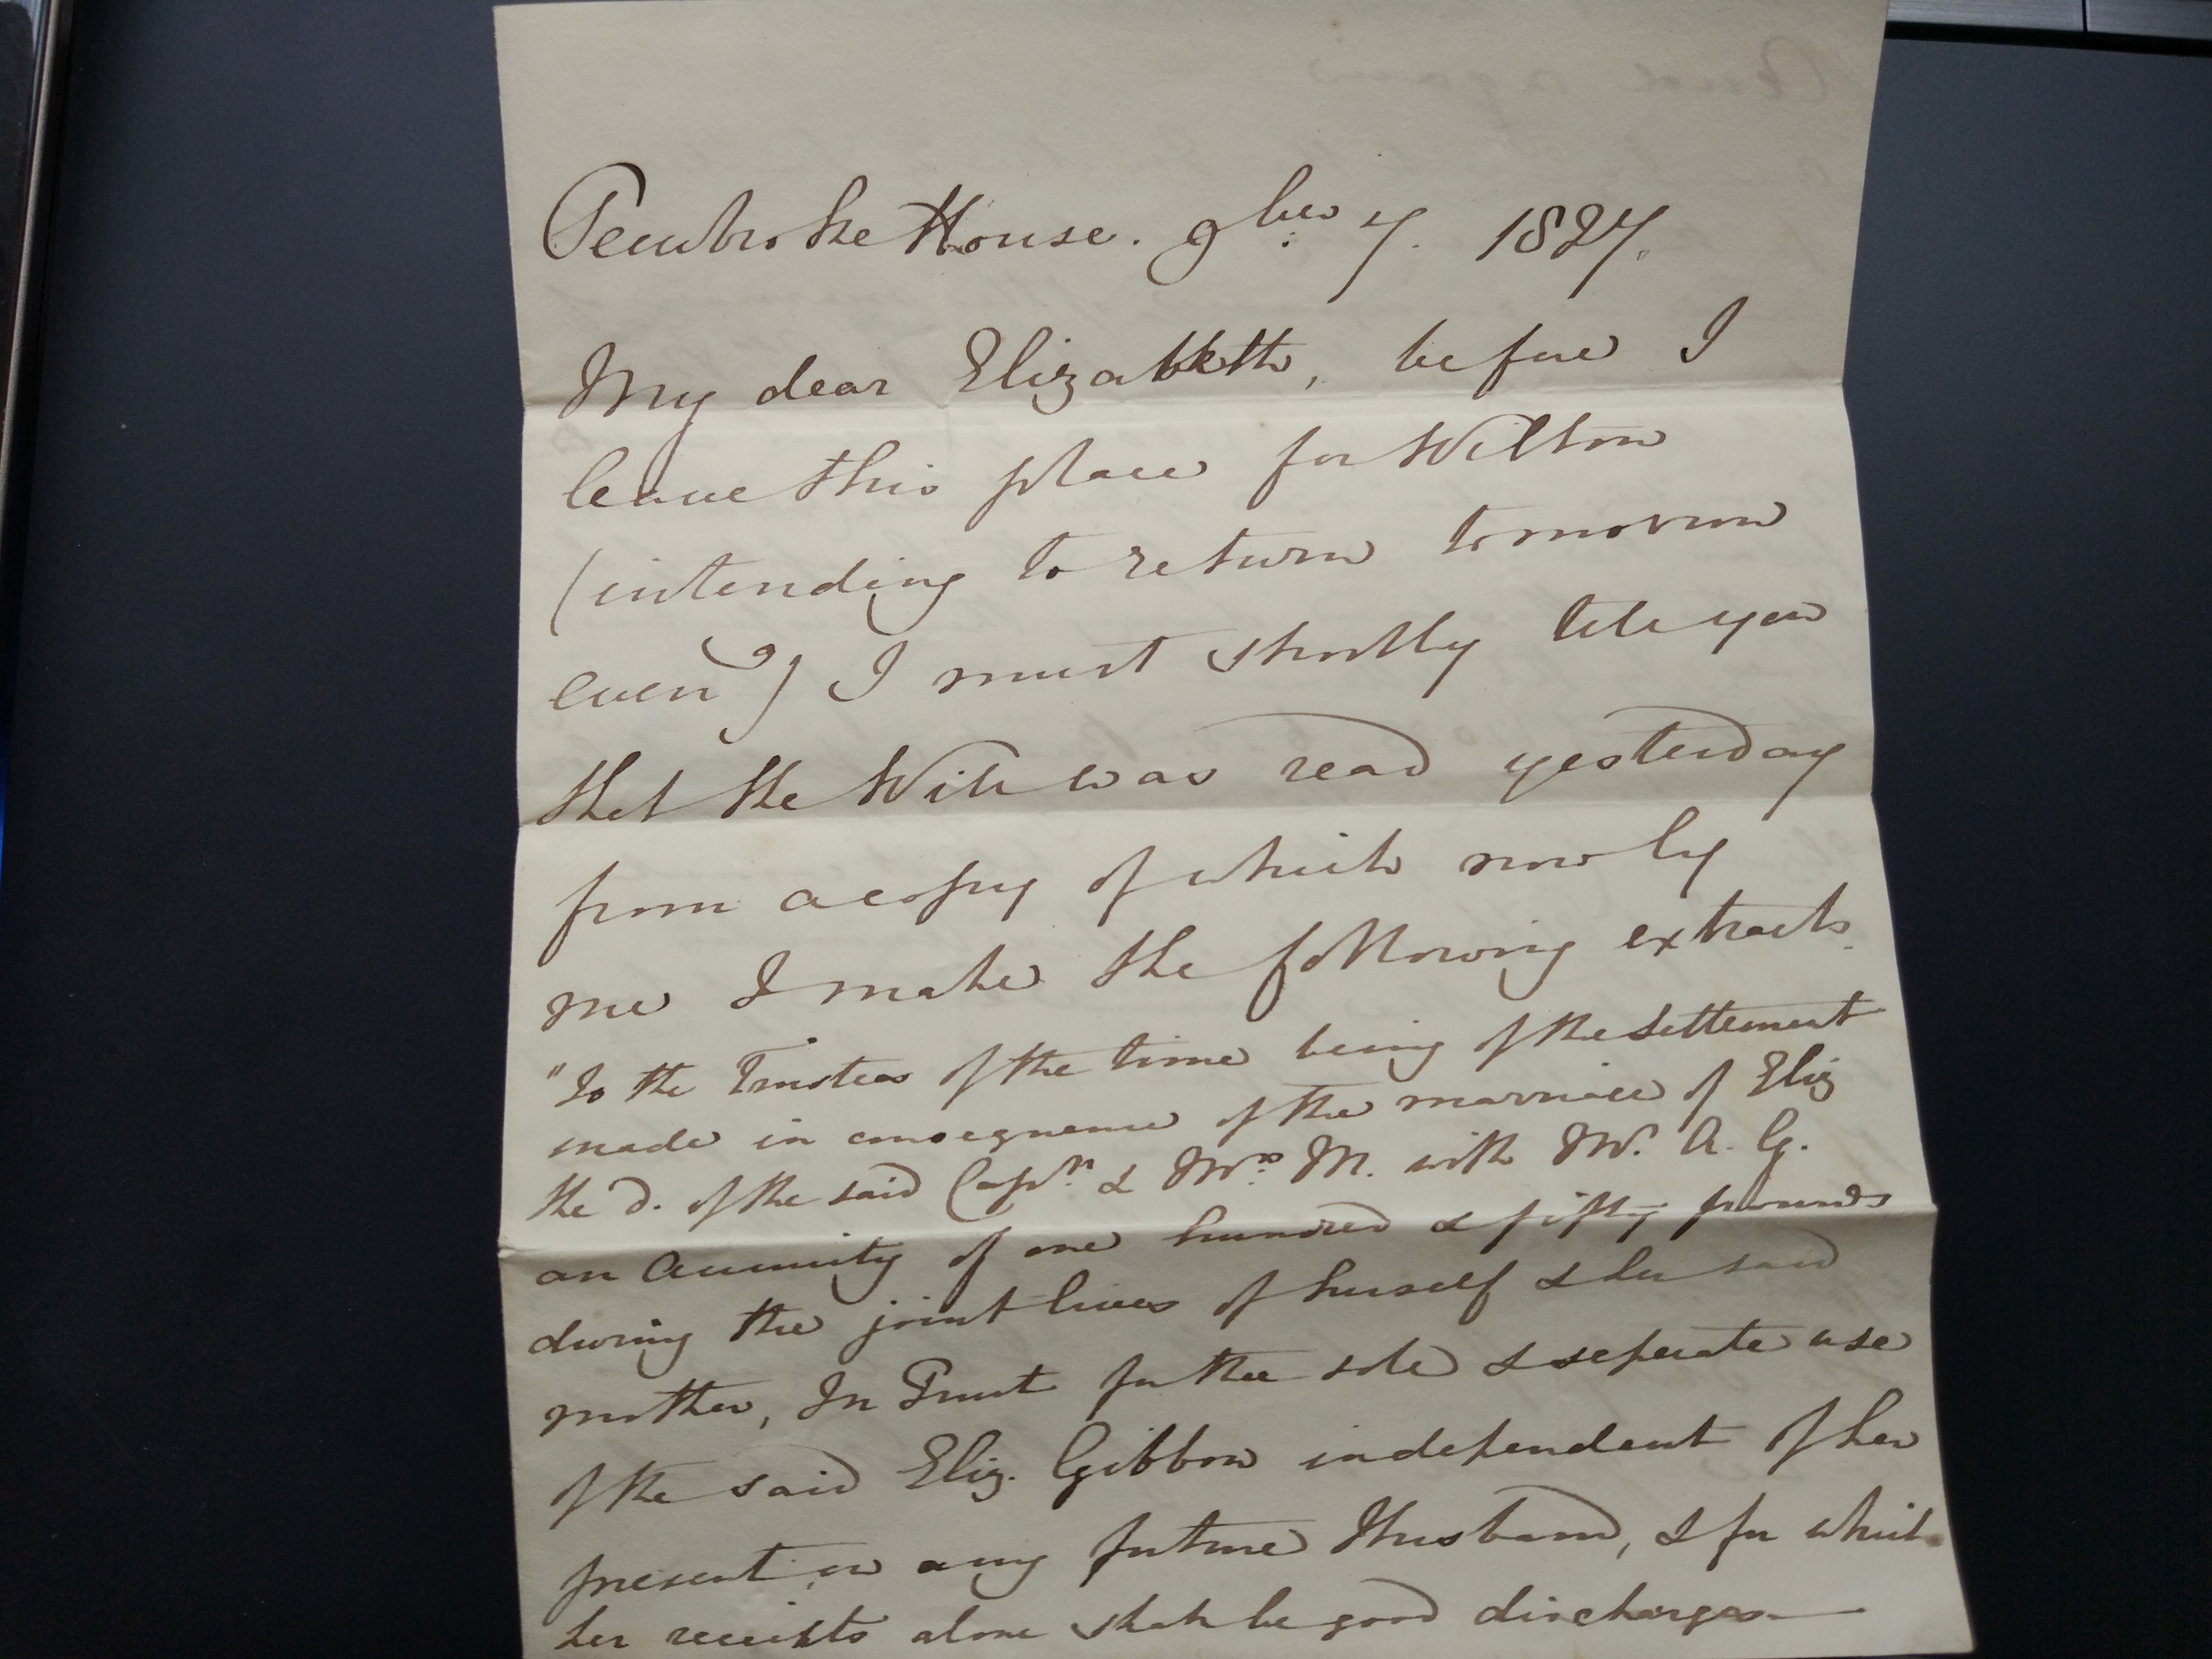 Pembroke House. 9ber 7. 1827.
My dear Elizabeth, before I
leave this place for Wilton
(intending to return tomorrow
eveng) I must shortly tell you
that the Will was read yesterday
from a copy of which now by
me I make the following extracts.
"To the Trustees of the time being of the Settlement
made in consequence of the marriage of Eliz
the D. of the said Captn & Mrs M. with Mr. A. G.
an Annuity of one hundred & fifty pounds
during the joint lives of herself & her said
mother, In Trust for the sole & seperate use
of the said Eliz. Gibbon independent of her
present or any future Husband, & for which
her receipts alone shall be good discharges—